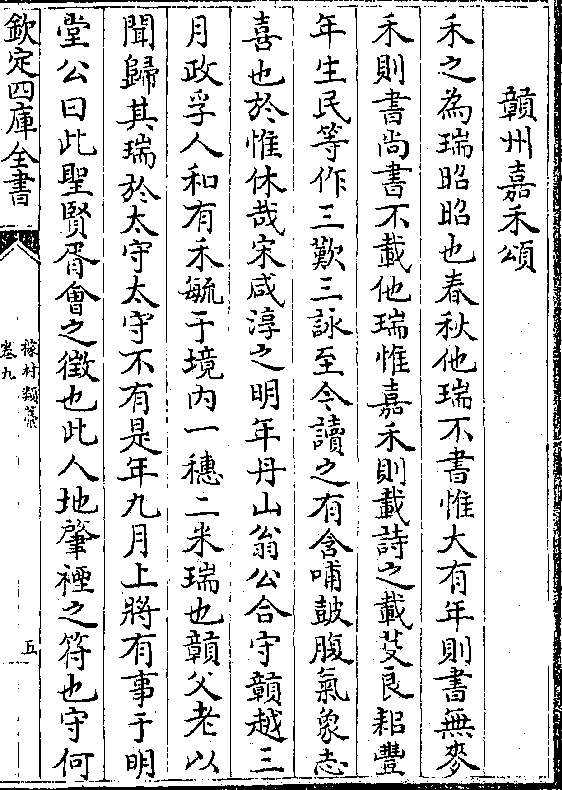 贑州嘉禾頌
禾之為瑞昭昭也春秋他瑞不書惟大有年則書無麥
禾則書尚書不載他瑞惟嘉禾則載詩之載芟良耜豐
年生民等作三歎三詠至今讀之有含哺鼓腹氣象志
喜也於惟休哉宋咸淳之明年丹山翁公合守贑越三
月政孚人和有禾毓于境內一穗二米瑞也贑父老以
聞歸其瑞於太守太守不有是年九月上將有事于明
堂公曰此聖賢胥會之徵也此人地肇禋之符也守何
欽定四庫全書
稼村類藁
卷九
五